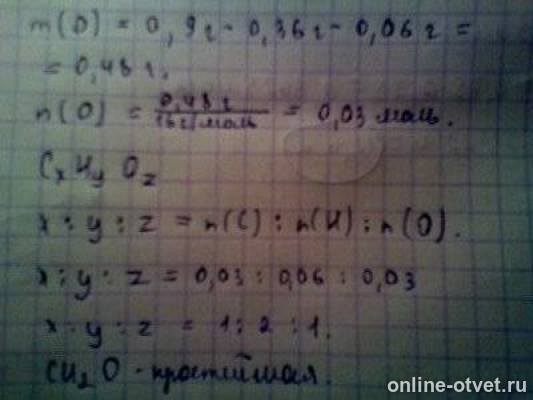 m(O) = 0,9г - 0,36г - 0,06г =
= 0,48г.
n(O) = 0,48г / 16г/моль = 0,03 моль.
CxHyOz
x : y : z = n(C) : n(H) : n(O).
x : y : z = 0,03 : 0,06 : 0,03
x : y : z = 1 : 2 : 1.
CH₂O - простейшая.
online-otvet.ru